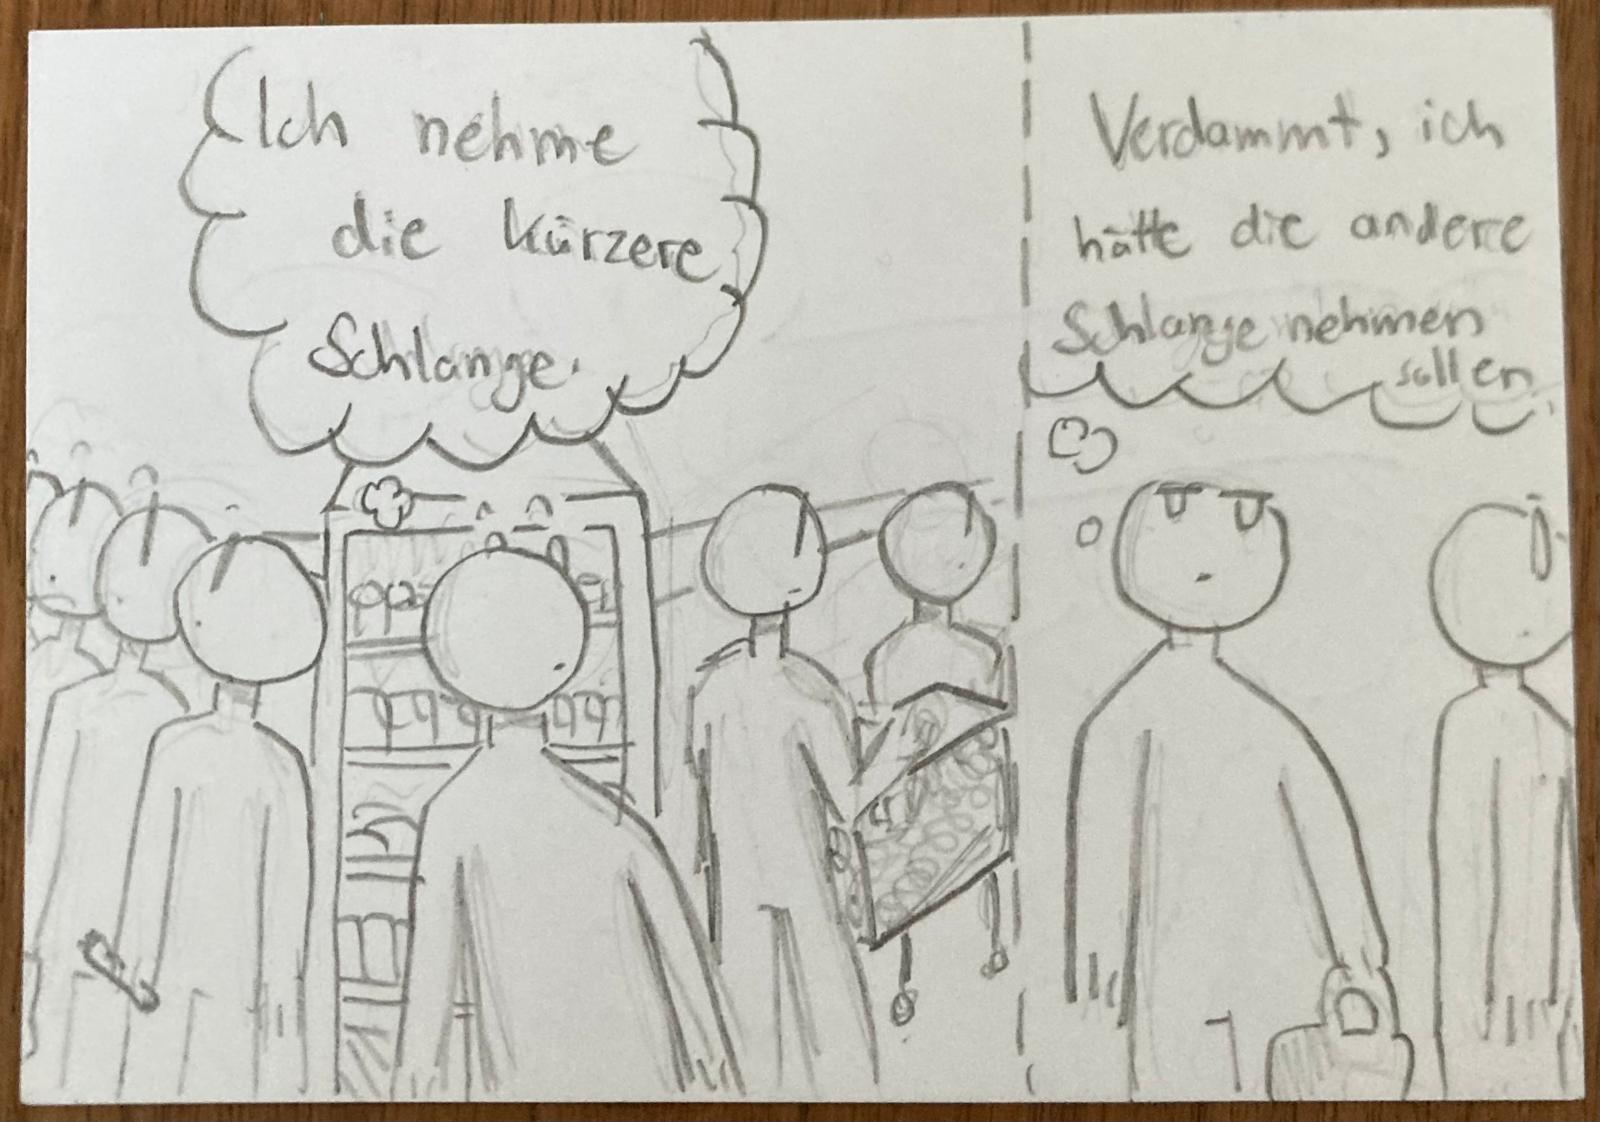 Ich nehme
die kürzere
Schlange.
Verdammt, ich
hätte die andere
Schlange nehmen
sollen